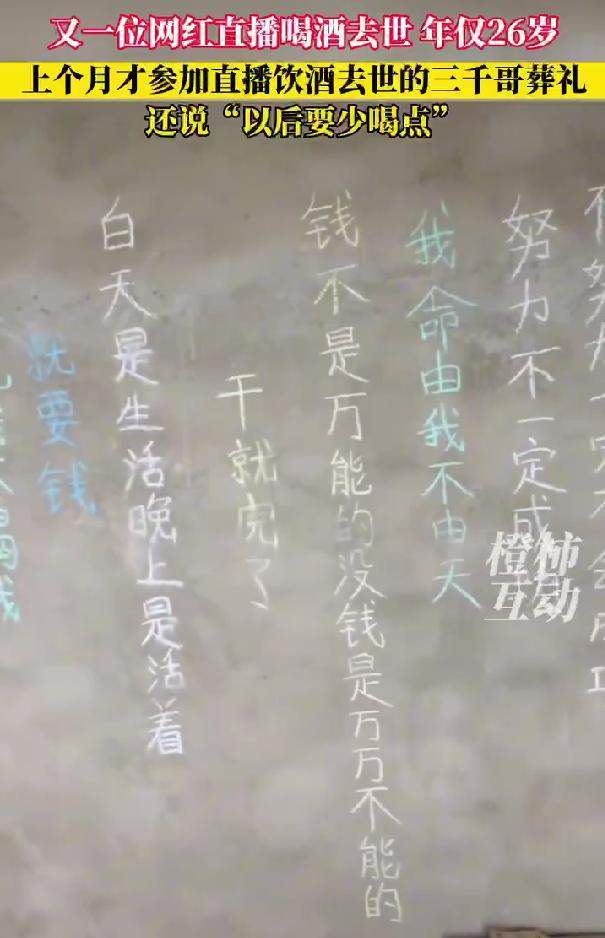 又一位网红直播喝酒去世 年仅26岁
上个月才参加直播饮酒去世的三千哥葬礼
还说“以后要少喝点”
努力不一定成
我命由我不由天
钱不是万能的没钱是万万不能的
干就完了
白天是生活晚上是活着
就要钱
橙柿
互动